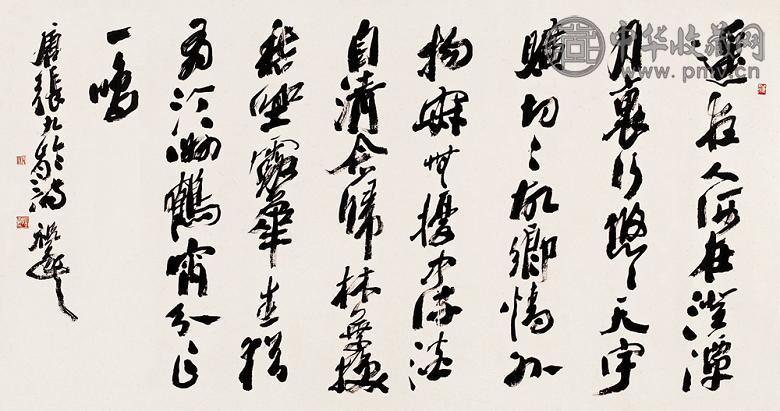 遥夜人何在澄潭
月裏行悠々天宇
曠切々故鄉情外
物寂無擾中流澹
自清念歸林葉換
愁坐露華生猶
有汀洲鶴宵分乍
一鳴
唐張九齡詩
中华收藏网